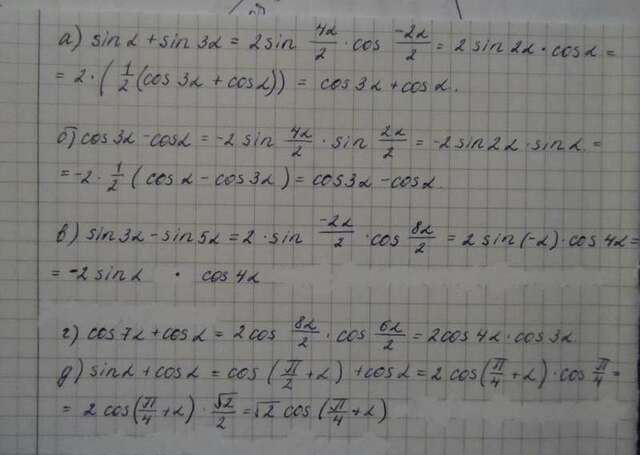 а) sin α + sin 3α = 2 sin 4α/2 · cos -2α/2 = 2 sin 2α · cos α =
= 2 · ( 1/2 (cos 3α + cos α)) = cos 3α + cos α.
б) cos 3α - cos α = -2 sin 4α/2 · sin 2α/2 = -2 sin 2α · sin α =
= -2 · 1/2 ( cos α - cos 3α ) = cos 3α - cos α.
в) sin 3α - sin 5α = 2 · sin -2α/2 · cos 8α/2 = 2 sin (-α) · cos 4α =
= -2 sin α · cos 4α
г) cos 7α + cos α = 2 cos 8α/2 · cos 6α/2 = 2 cos 4α · cos 3α
д) sin α + cos α = cos (π/2 + α) + cos α = 2 cos (π/4 + α) · cos π/4 =
= 2 cos (π/4 + α) · √2/2 = √2 cos (π/4 + α)